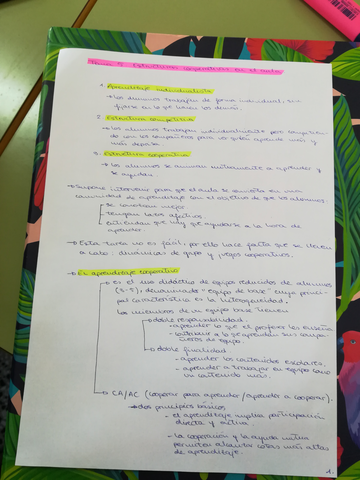 Tema 5: Estructuras cooperativas en el aula
1. Aprendizaje individualista
→ los alumnos trabajan de forma individual, sin
fijarse en lo que hacen los demás.
2. Estructura competitiva
→ los alumnos trabajan individualmente pero compitiendo
con los compañeros para ver quién aprende más y
más deprisa.
3. Estructura cooperativa
→ los alumnos se animan mutuamente a aprender y
se ayudan.
→ Supone intervenir para que el aula se convierta en una
comunidad de aprendizaje con el objetivo de que los alumnos:
se conozcan mejor
tengan lazos afectivos
entiendan que hay que ayudarse a la hora de
aprender.
→ Esta tarea no es fácil, por ello hace falta que se lleven
a cabo: dinámicas de grupo y juegos cooperativos.
→ El aprendizaje cooperativo
→ es el uso didáctico de equipos reducidos de alumnos
(3-5), denominado "equipo de base" cuya principal
característica es la heterogeneidad.
Los miembros de un equipo base tienen
→ doble responsabilidad
- aprender lo que el profesor les enseña
- contribuir a lo que aprendan sus compañeros
de equipo.
→ doble finalidad
- aprender los contenidos escolares.
- aprender a trabajar en equipo como
un contenido más.
→ CA/AC (cooperar para aprender/aprender a cooperar).
→ dos principios básicos
- el aprendizaje implica participación
directa y activa.
- la cooperación y la ayuda mutua
permiten alcanzar cotas más altas
de aprendizaje.
1.